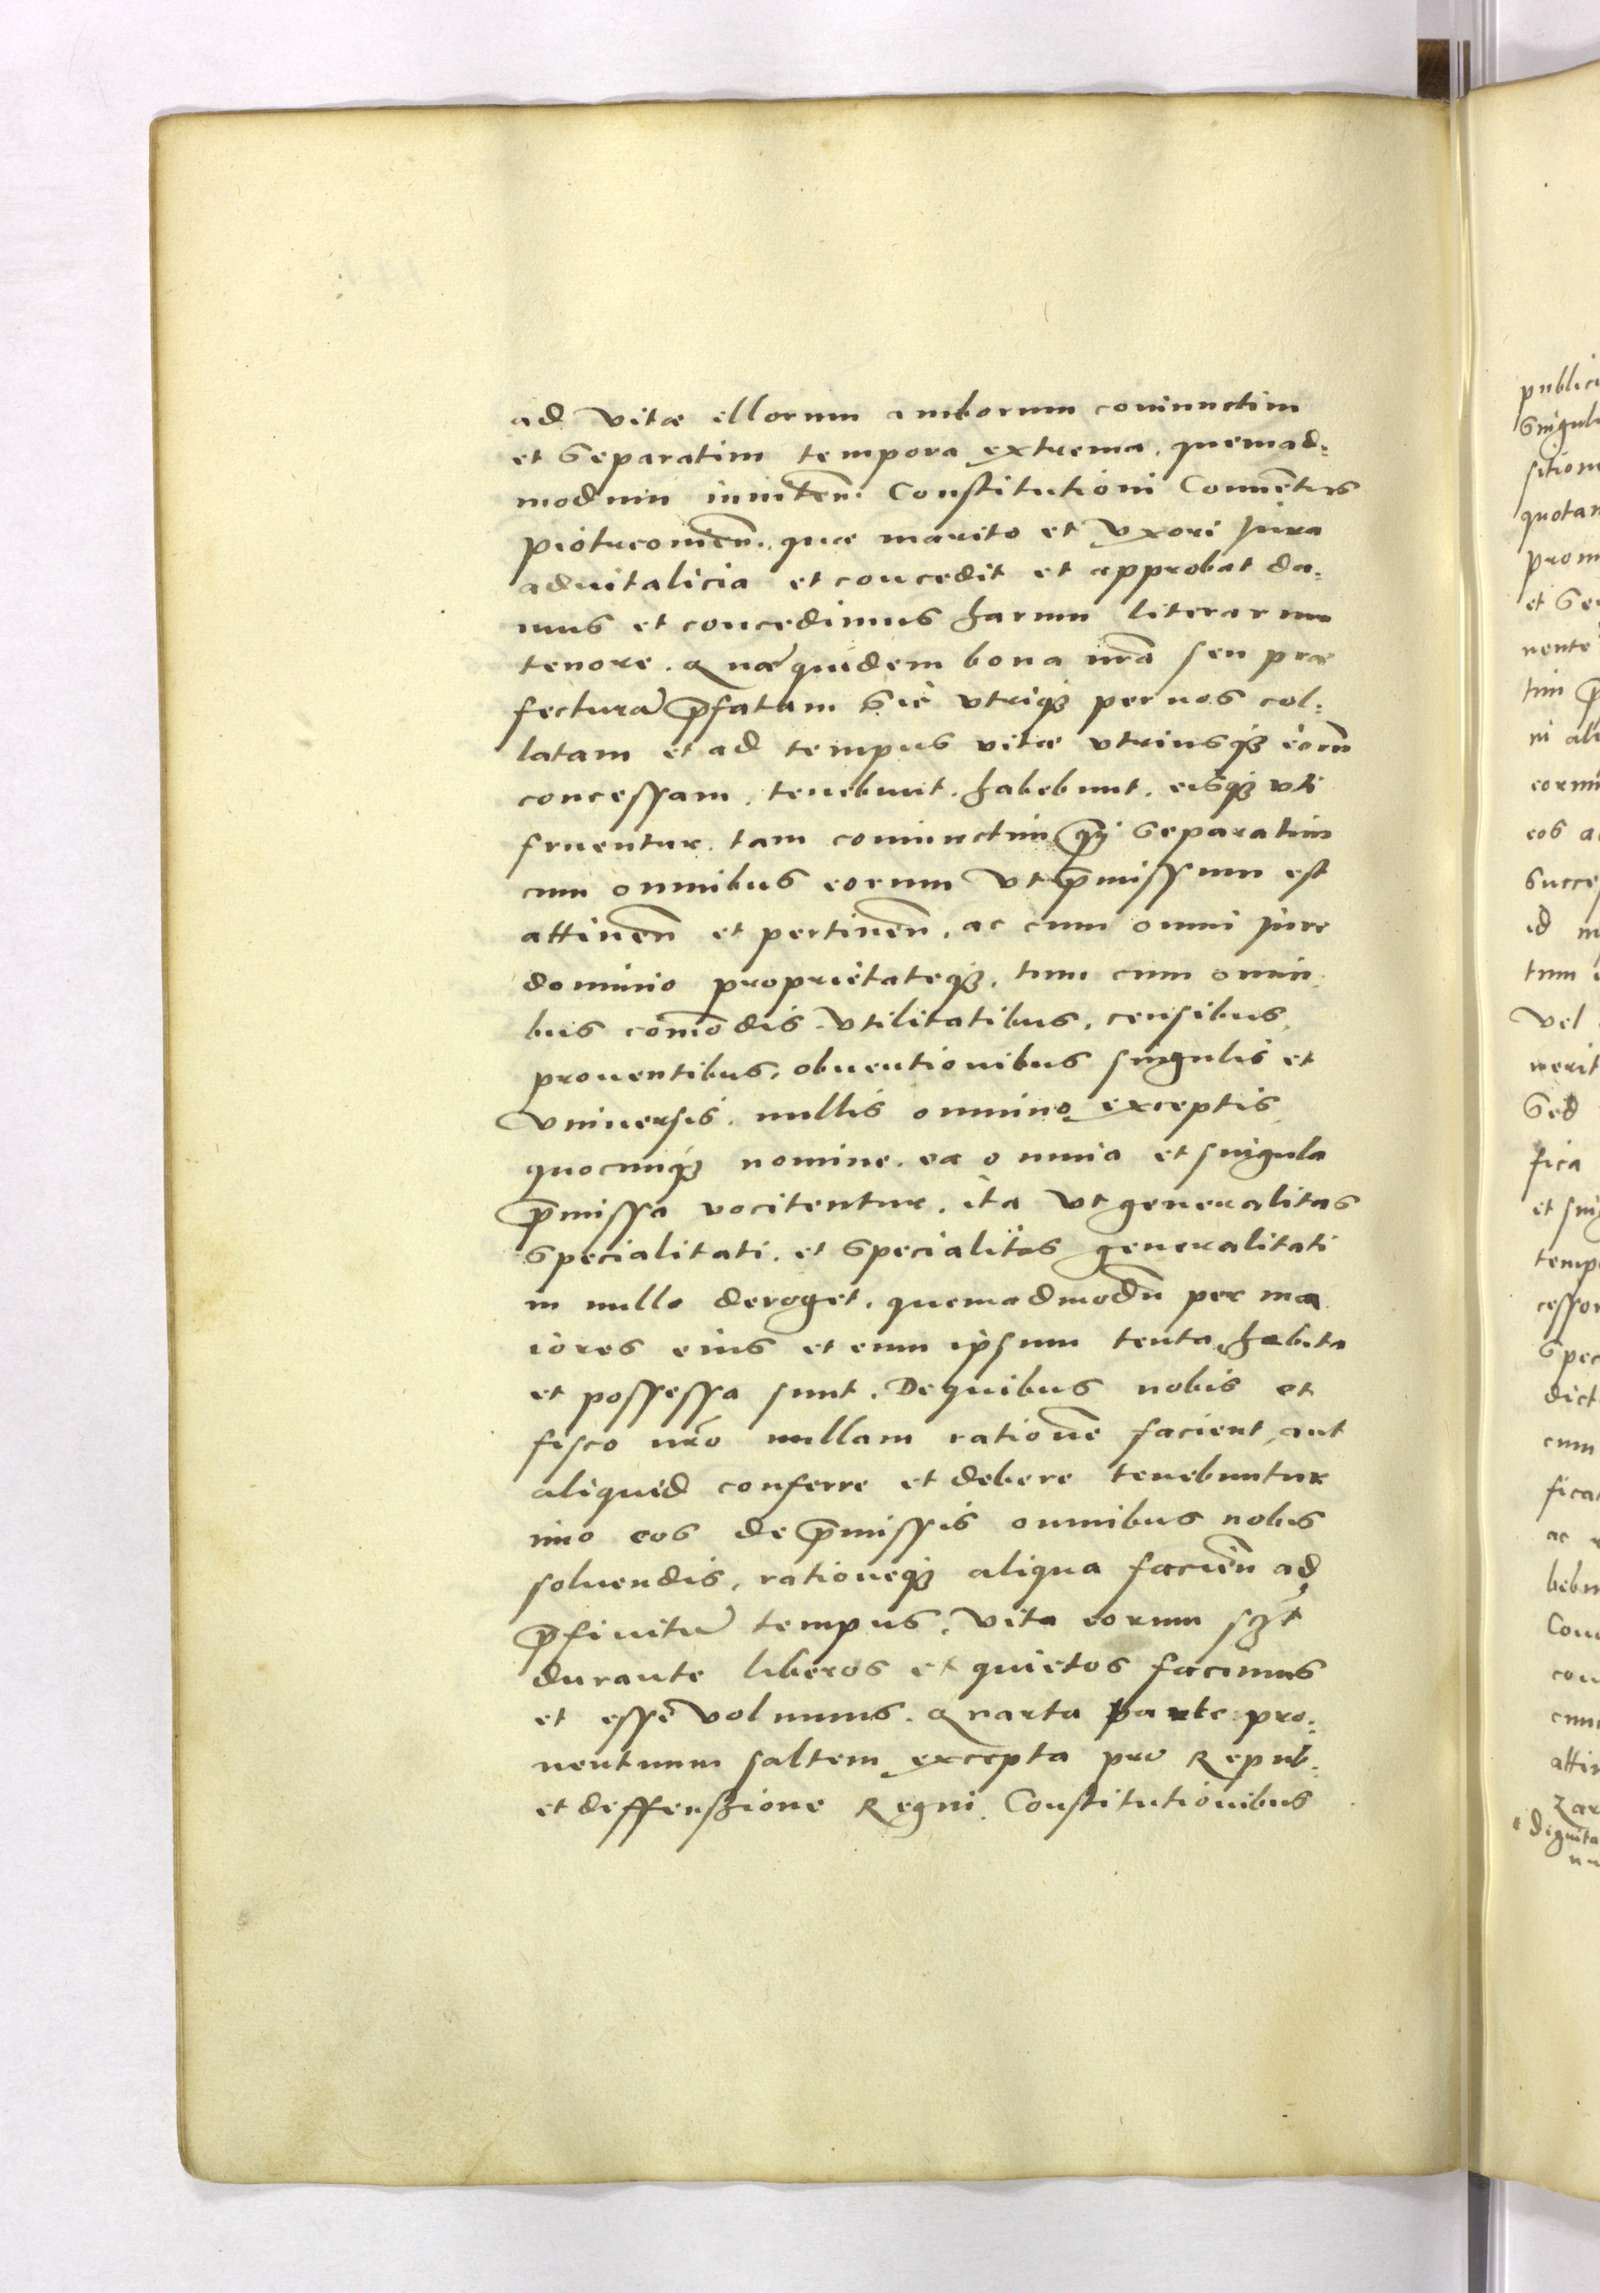 ad vitæ illorum amborum coniunctim
et separatim tempora extrema. quemad:
modum inniten̄. Constitutioni Conuēntus
Piotrcouien̄. quæ marito et vxori jura
aduitalicia et concedit et approbat da:
mus et concedimus harum literarum
tenore. Quæquidem bona nr̄a seu præ
fecturā p̄fatam sic vtriqꝫ per nos col:
latam et ad tempus vitæ vtriusqꝫ eorū
concessam. tenebunt. habebunt. eisqꝫ vti
fruentur. tam coniunctim qꝫ separatim
cum omnibus eorum vt p̄missum est
attinen̄ et pertinen̄. ac cum omni jure
dominio proprietateqꝫ. tum cum omni
bus com̄odis. vtilitatibus. censibus.
prouentibus. obuentionibus singulis et
vniuersis. nullis omnino exceptis
quocunqꝫ nomine. ea omnia et singula
p̄missa vocitentur. ita vt generalitas
specialitati. et specialitas generalitati
in nullo deroget. quemadmodū per ma
iores eius et eum ipsum tenta, habita
et possessa sunt. De quibus nobis et
fisco nr̄o nullam rationē facient, aut
aliquid conferre et debere tenebuntur
imo eos de p̄missis omnibus nobis
soluendis, rationeqꝫ aliqua facien̄ ad
p̄finitū tempus. vita eorum sꝫt
durante liberos et quietos facimus
et esse volumus. Quarta parte pro:
uentuum saltem excepta pro Repub:
et deffensione Regni. Constitutionibus